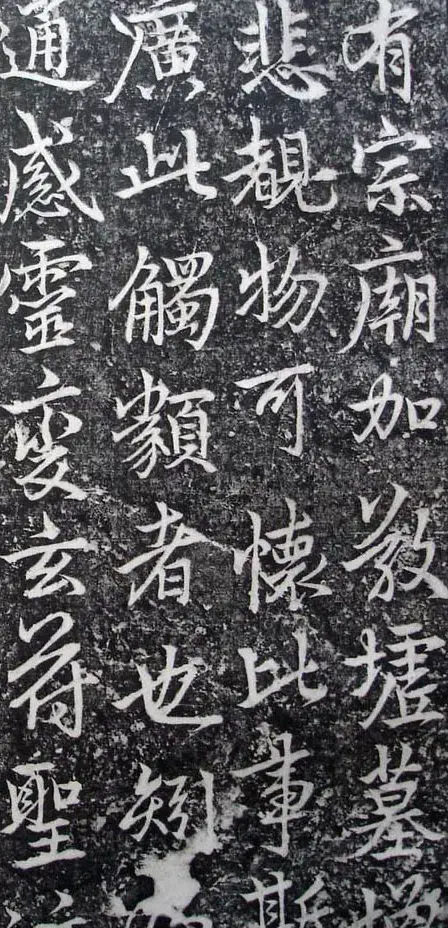 有宗廟加敬墟墓增
悲覩物可懷比事斯
廣此觸類者也矧
通感靈變玄符聖